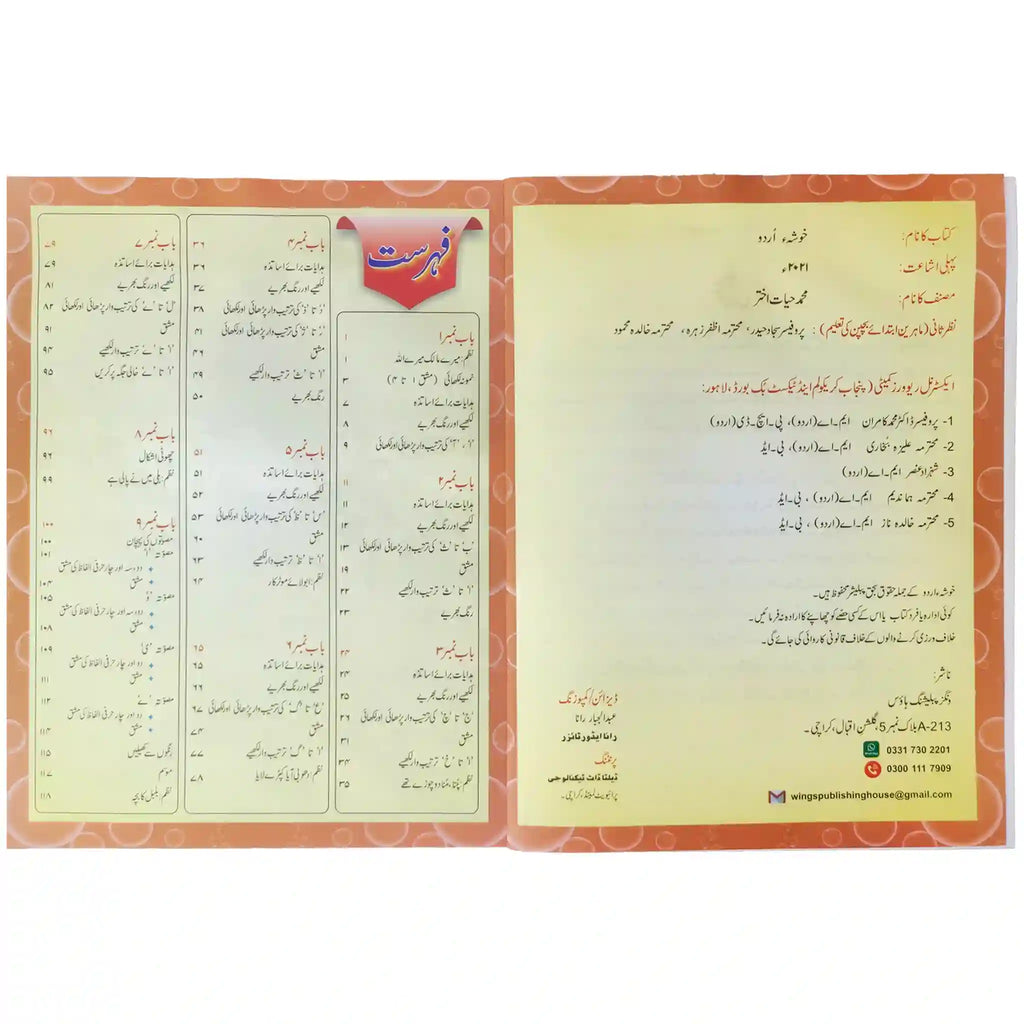 کتاب کا نام: خوشۂ اُردو
پہلی اشاعت: ۲۰۲۱ء
مصنف کا نام: محمد حیات اختر
نظر ثانی (ماہرین ابتدائے بچپن کی تعلیم): پروفیسر سجاد حیدر، محترمہ اظفر زہرہ، محترمہ خالدہ محمود
ایکسٹرنل ریوورز کمیٹی (پنجاب کریکولم اینڈ ٹیکسٹ بک بورڈ، لاہور:
1- پروفیسر ڈاکٹر محمد کامران ایم۔اے (اردو)، پی۔ایچ۔ڈی (اردو)
2- محترمہ علیزہ بخاری ایم۔اے (اردو)، بی۔ایڈ
3- شہزاد عنصر ایم۔اے (اردو)
4- محترمہ ہما ندیم ایم۔اے (اردو)، بی۔ایڈ
5- محترمہ خالدہ ناز ایم۔اے (اردو)، بی۔ایڈ
خوشۂ اردو کے جملہ حقوق بحق پبلیشر محفوظ ہیں۔
کوئی ادارہ یا فرد کتاب یا اس کے کسی حصّے کو چھاپنے کا ارادہ نہ فرمائیں۔
خلاف ورزی کرنے والوں کے خلاف قانونی کاروائی کی جائے گی۔
ناشر:
ونگز پبلیشنگ ہاؤس
A-213 بلاک نمبر 5، گلشن اقبال، کراچی۔
0331 730 2201
0300 111 7909
wingspublishinghouse@gmail.com
ڈیزائن/کمپوزنگ
عبدالجبار رانا
رانا ایڈورٹائزر
پرنٹنگ
ڈیلٹا ڈاٹ ٹیکنالوجی
پرائیویٹ لمیٹڈ، کراچی۔
فہرست
باب نمبر ۱ ۱
نظم: میرے مالک میرے اللہ ۱
نمونہ لکھائی (مشق ۱ تا ۴) ۳
ہدایات برائے اساتذہ ۷
لکھیے اور رنگ بھریے ۸
'ا'، 'آ' کی ترتیب وار پڑھائی اور لکھائی ۹
باب نمبر ۲ ۱۱
ہدایات برائے اساتذہ ۱۱
لکھیے اور رنگ بھریے ۱۲
'ب' تا 'ث' کی ترتیب وار پڑھائی اور لکھائی ۱۳
مشق ۱۹
'ا' تا 'ث' ترتیب وار لکھیے ۲۲
رنگ بھریے ۲۳
باب نمبر ۳ ۲۴
ہدایات برائے اساتذہ ۲۴
لکھیے اور رنگ بھریے ۲۵
'ج' تا 'خ' کی ترتیب وار پڑھائی اور لکھائی ۲۶
مشق ۳۱
'ا' تا 'خ' ترتیب وار لکھیے ۳۴
نظم: چُنّا، مُنّا دو چوزے تھے ۳۵
باب نمبر ۴ ۳۶
ہدایات برائے اساتذہ ۳۶
لکھیے اور رنگ بھریے ۳۷
'د' تا 'ذ' کی ترتیب وار پڑھائی اور لکھائی ۳۸
'ر' تا 'ژ' کی ترتیب وار پڑھائی اور لکھائی ۴۱
مشق ۴۶
'ا' تا 'ژ' ترتیب وار لکھیے ۴۹
رنگ بھریے ۵۰
باب نمبر ۵ ۵۱
ہدایات برائے اساتذہ ۵۱
لکھیے اور رنگ بھریے ۵۲
'س' تا 'ظ' کی ترتیب وار پڑھائی اور لکھائی ۵۳
مشق ۶۰
'ا' تا 'ظ' ترتیب وار لکھیے ۶۳
نظم: ابو لائے موٹر کار ۶۴
باب نمبر ۶ ۶۵
ہدایات برائے اساتذہ ۶۵
لکھیے اور رنگ بھریے ۶۶
'ع' تا 'گ' کی ترتیب وار پڑھائی اور لکھائی ۶۷
مشق
'ا' تا 'گ' ترتیب وار لکھیے ۷۷
نظم: دھوبی آیا کپڑے لایا ۷۸
باب نمبر ۷ ۷۹
ہدایات برائے اساتذہ ۷۹
لکھیے اور رنگ بھریے ۸۱
'ل' تا 'ے' کی ترتیب وار پڑھائی اور لکھائی ۸۲
مشق ۹۱
'ا' تا 'ے' ترتیب وار لکھیے ۹۴
'ا' تا 'ے' خالی جگہ پر کریں ۹۵
باب نمبر ۸ ۹۶
چھوٹی اشکال ۹۶
نظم: بلی میں نے پالی ہے ۹۹
باب نمبر ۹ ۱۰۰
مصوتوں کی پہچان ۱۰۰
مصوتہ 'ا' ۱۰۱
دو، سہ اور چار حرفی الفاظ کی مشق
مشق ۱۰۴
مصوتہ 'و' ۱۰۵
دو، سہ اور چار حرفی الفاظ کی مشق
مشق ۱۰۸
مصوتہ 'ی' ۱۰۹
دو اور چار حرفی الفاظ کی مشق
مشق ۱۱۱
مصوتہ 'ے' ۱۱۲
دو اور چار حرفی الفاظ کی مشق
مشق ۱۱۴
رنگوں سے کھیلیں ۱۱۵
موسم ۱۱۷
نظم: بلبل کا بچہ ۱۱۸